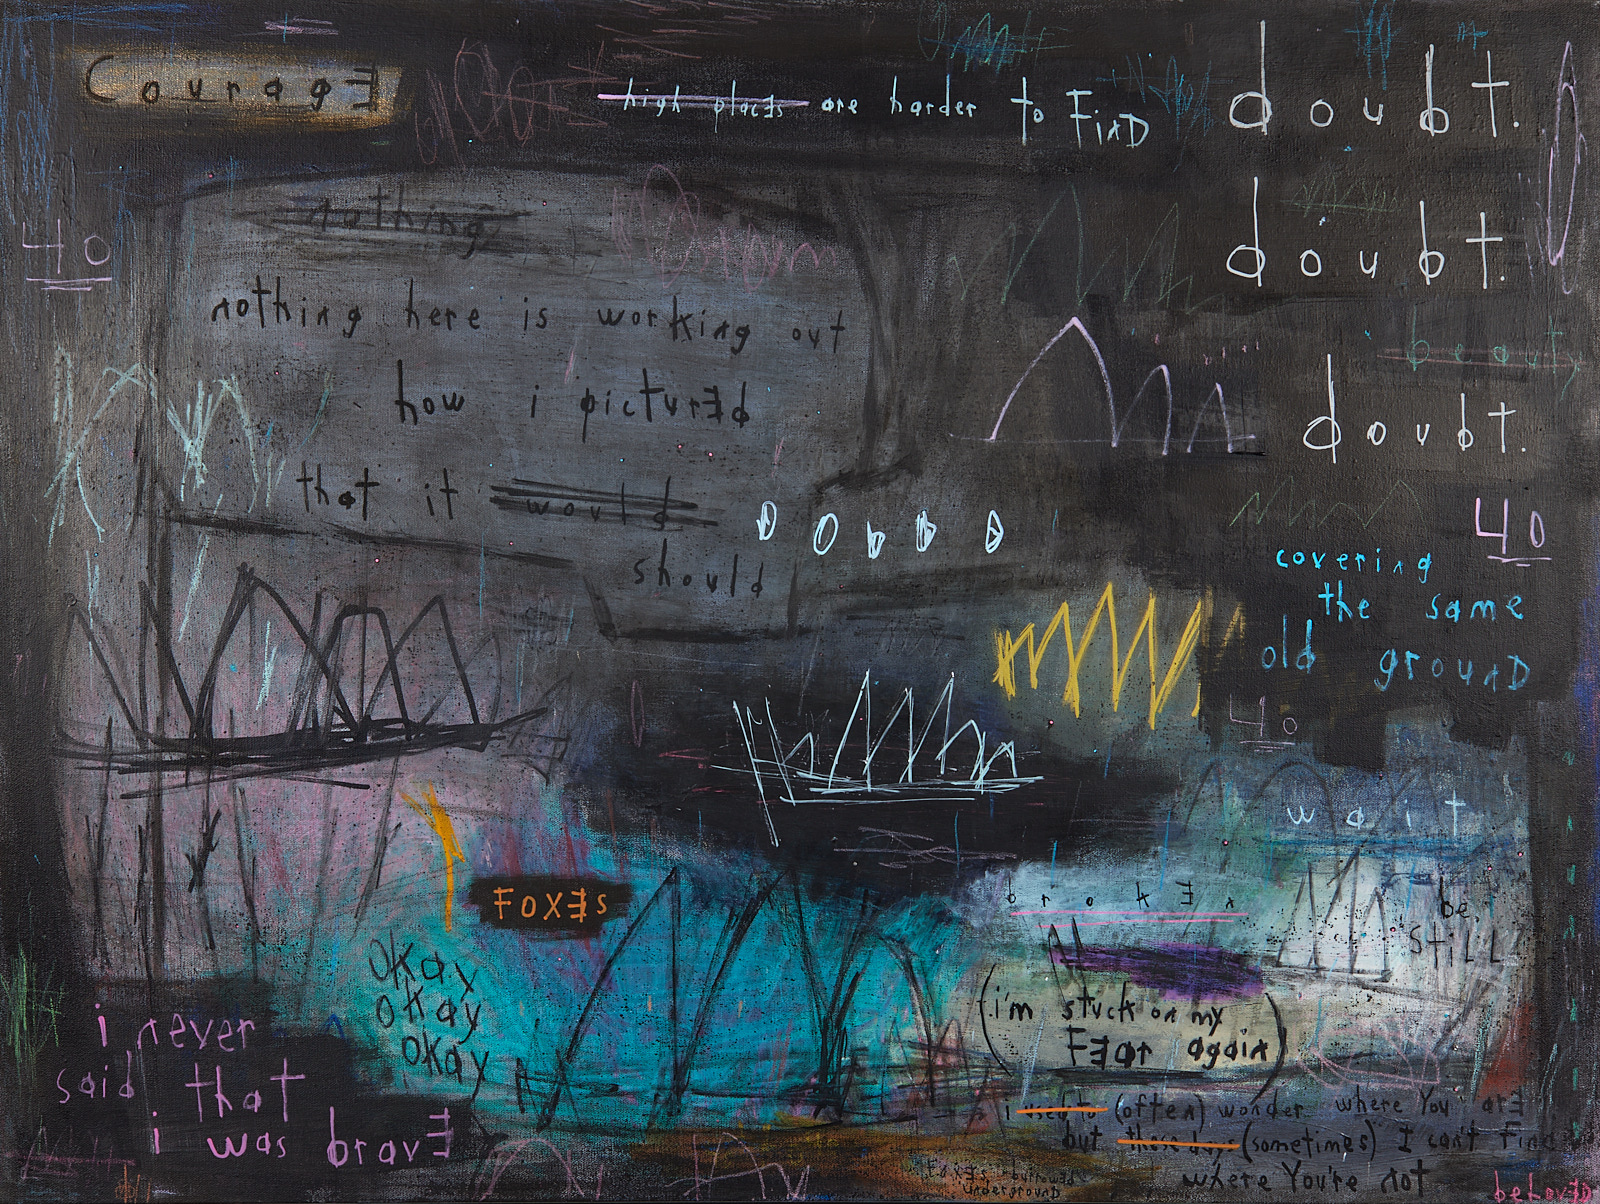 Courage
high places are harder to Find
doubt.
doubt.
40
nothing
nothing here is working out
how i pictured
that it would
should
doubt.
40
covering
the same
old ground
40
wait
Foxes
broken
be
still
okay
okay
okay
(i'm stuck on my
Fear again)
i never
said that
i was brave
i used to (often) wonder where You are
but these days (sometimes) I can't find
where You're not
Foxes burrowed
underground